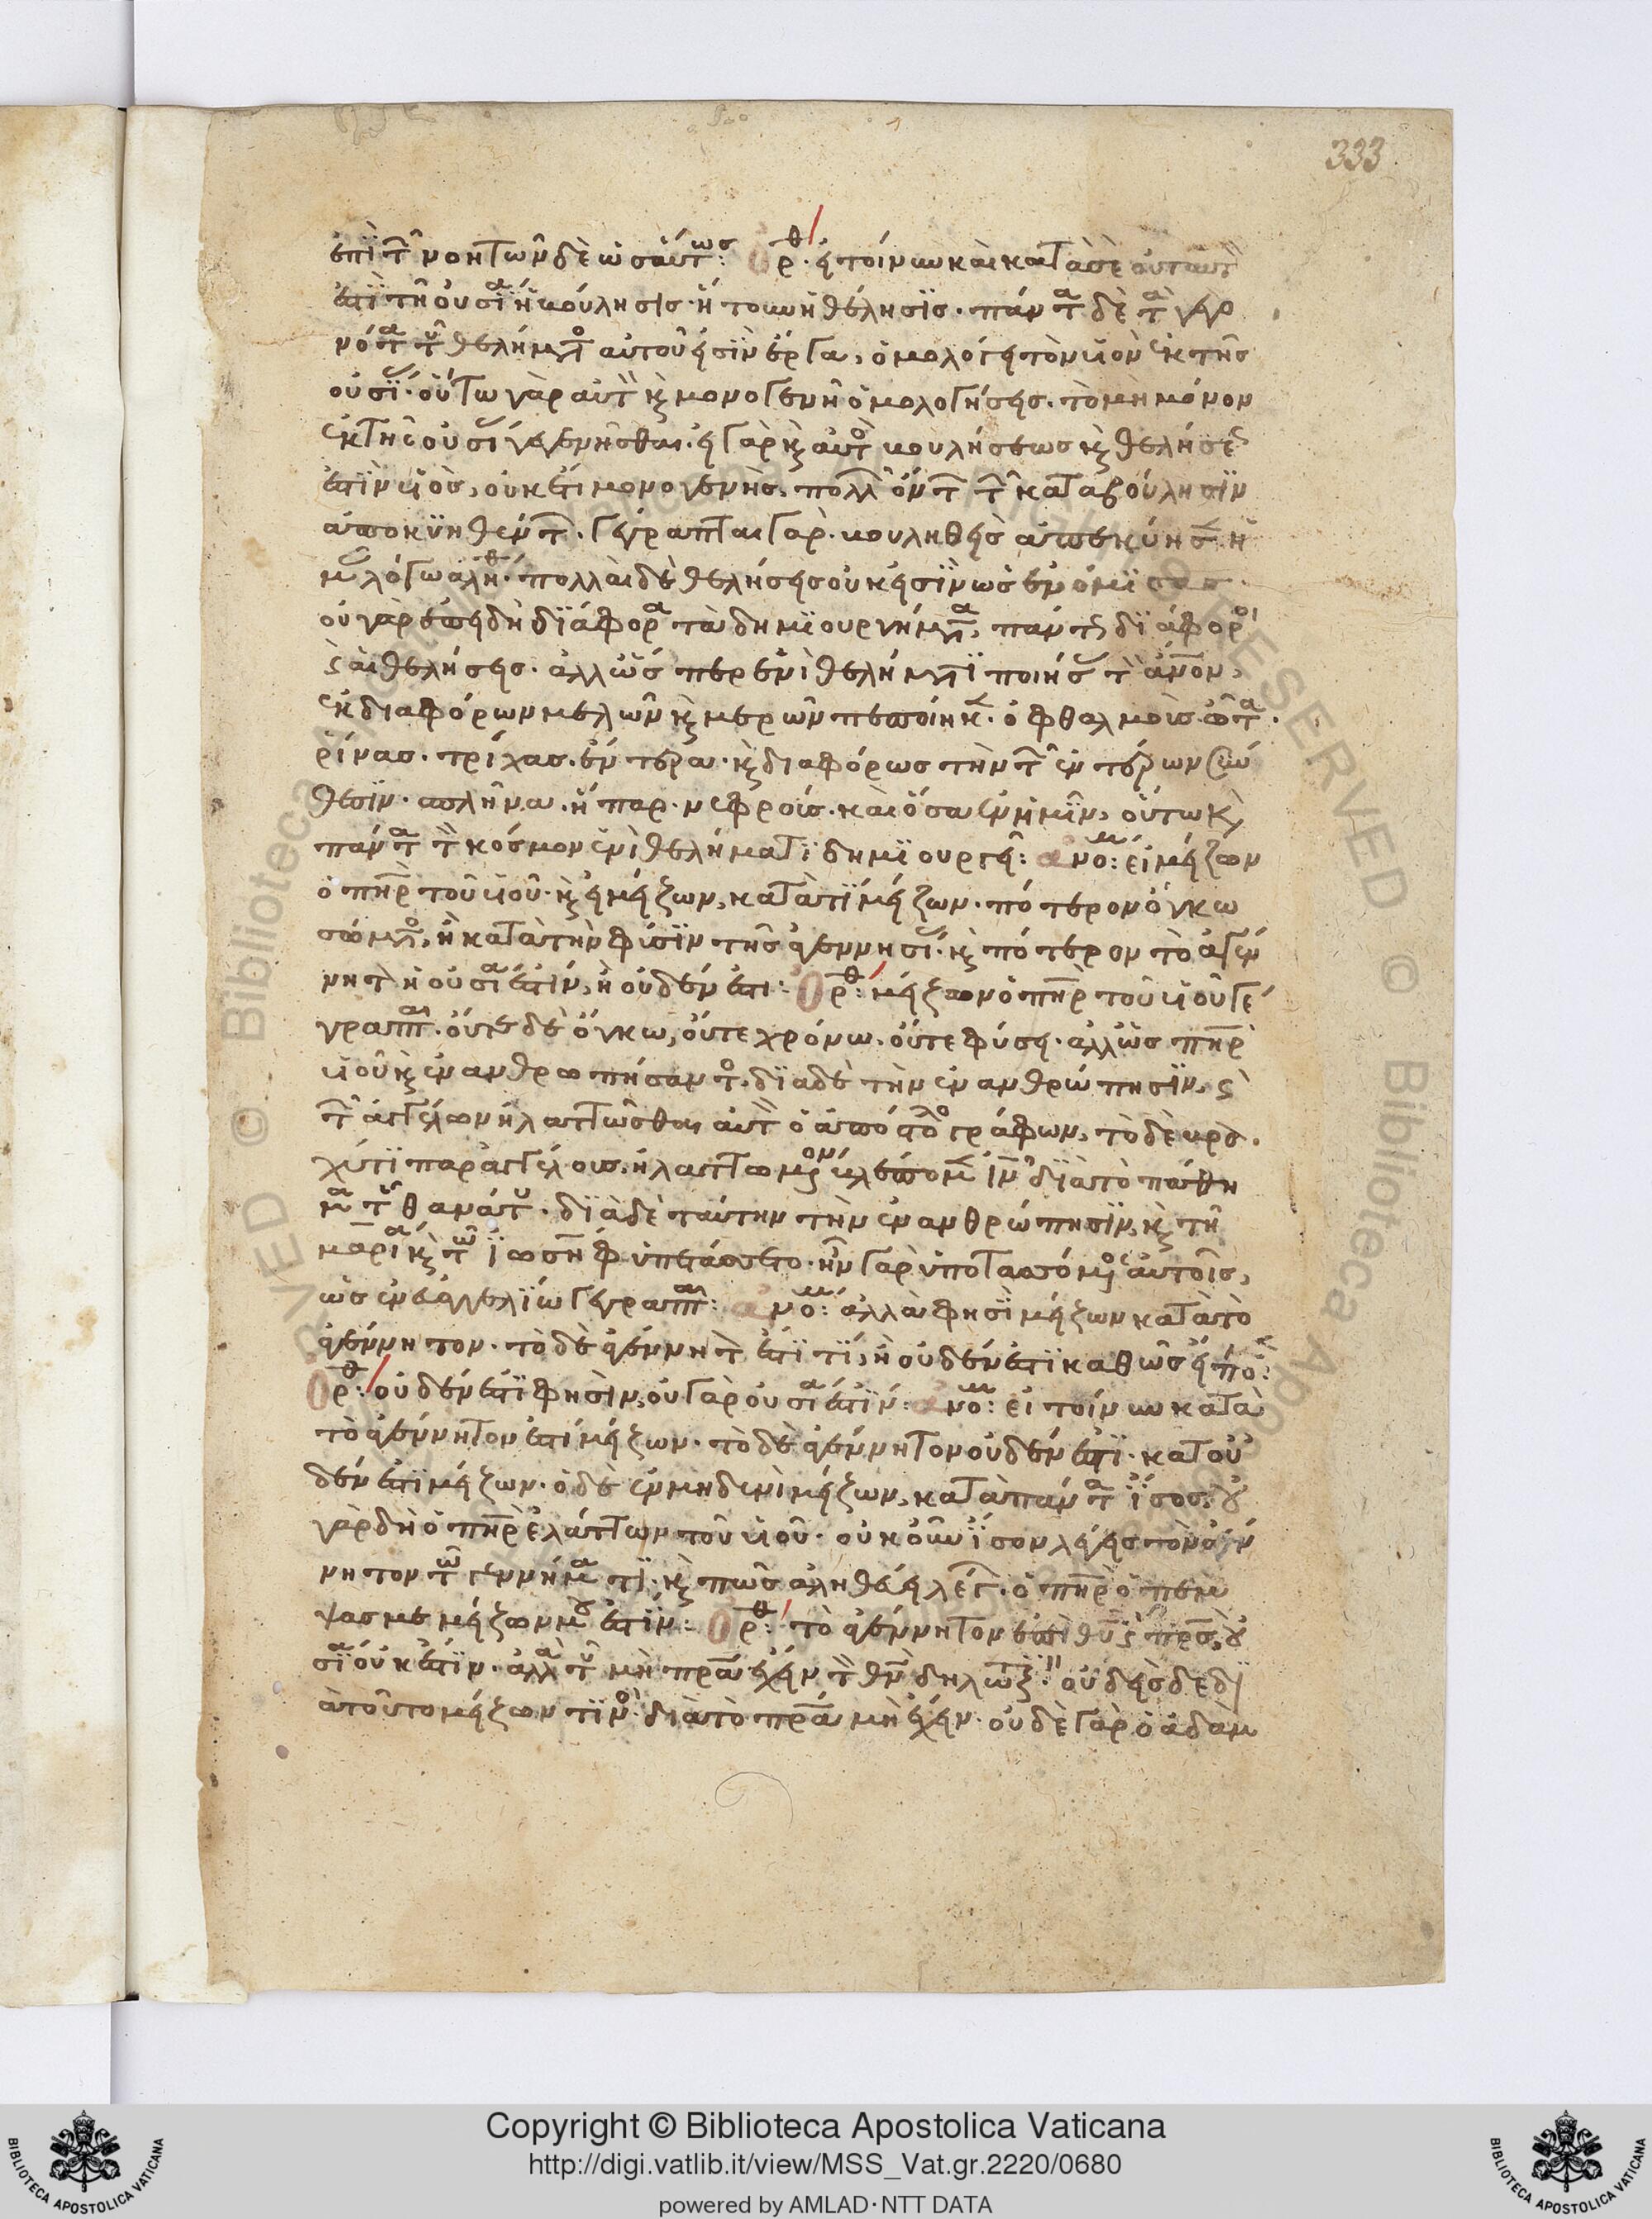 333
ἐπὶ τῶν νοητῶν δὲ ὡσαύτως: Ὀρθ. εἰ τοίνυν καὶ κατὰ σὲ
ἐπὶ τῆ οὐσία ἡ βούλησις ἤτουν ἡ θέλησις. πάντα δὲ τὰ γεγο
νότα τοῦ θελήματος αὐτοῦ εἰσὶν ἔργα, ὁμολόγει τὸν υἱὸν ἐκ τῆς
οὐσίας. οὕτω γὰρ αὐτὸν καὶ μονογενῆ ὁμολογήσεις. τὸ μὴ μόνον
ἐκ τῆς οὐσίας γεγεννῆσθαι. εἰ γὰρ καὶ αὐτὸς βουλήσεως καὶ θελήσεως
ἐστὶν υἱὸς, οὐκέτι μονογενὴς, πολλῶν ὄντων τῶν κατὰ βούλησιν
ἀποκυηθέντων. γέγραπται γὰρ. βουληθεὶς ἀπεκύησεν ἡ
μᾶς λόγω ἀληθείας. πολλαὶ δὲ θελήσεις οὐκ εἰσὶν ὡς ἐνόμισας
οὐ γὰρ ἐπειδὴ διάφορα τὰ δημιουργήματα, πάντως διάφοροι
καὶ αἱ θελήσεις. ἀλλ' ὥσπερ ἑνὶ θελήματι ποιήσας τὸν ἄνθρωπον,
ἐκ διαφόρων μελῶν καὶ μερῶν πεποίηκεν. ὀφθαλμοῖς. ὦτα.
ῥίνας. τρίχας. ἔντερα. καὶ διαφόρως τὴν τῶν ἐντέρων σύν
θεσιν. σπλῆνα. ἧπαρ. νεφροῖς. καὶ ὅσα ἐν ἡμῖν, οὕτω καὶ
πάντα τὸν κόσμον ἑνὶ θελήματι δημιουργεῖ: ἀνομ: εἰ μείζων
ὁ πατὴρ τοῦ υἱοῦ. καὶ εἰ μείζων, κατὰ τί μείζων. πότερον ὄγκω
σώματος, ἢ κατὰ τὴν φύσιν τῆς ἀγεννησίας. καὶ πότερον τὸ ἀγέν
νητον ἡ οὐσία ἐστίν, ἢ οὐδέν ἐστι: Ὀρθ: μείζων ὁ πατὴρ τοῦ υἱοῦ γέ
γραπται. οὔτε δὲ ὄγκω, οὔτε χρόνω. οὔτε φύσει. ἀλλ' ὡς πατὴρ
υἱοῦ καὶ ἐνανθρωπήσαντος. διὰ δὲ τὴν ἐνανθρώπησιν, καὶ
τῶν ἀγγέλων ἠλαττῶσθαι αὐτὸν ὁ ἀπόστολος γράφων, τὸ δὲ βρα
χύ τι παρ' ἀγγέλοις ἠλαττωμένον βλέπομεν Ἰησοῦν διὰ τὸ πάθη
μα τοῦ θανάτου. διὰ δὲ ταύτην τὴν ἐνανθρώπησιν, καὶ τῆ
μαρία καὶ τῶ ἰωσὴφ ὑπετάσσετο. ἦν γὰρ ὑποτασσόμενος αὐτοῖς,
ὡς ἐν εὐαγγελίω γέγραπται: ἀνομ: ἀλλὰ φησὶ μείζων κατὰ τὸ
ἀγέννητον. τὸ δὲ ἀγέννητον ἐστί τί, ἢ οὐδέν ἐστι καθὼς εἶπον:
Ὀρθ: οὐδέν ἐστι φησὶν, οὐ γὰρ οὐσία ἐστίν: ἀνομ: εἰ τοίνυν κατὰ
τὸ ἀγέννητον ἐστὶ μείζων. τὸ δὲ ἀγέννητον οὐδέν ἐστι. κατ' οὐ
δέν ἐστι μείζων. ὁ δὲ ἐν μηδενὶ μείζων, κατὰ πάντα ἴσος. οὐ
γὰρ δὴ ὁ πατὴρ ἐλάττων τοῦ υἱοῦ. οὐκοῦν ἴσον λέγεις τὸν ἀγέν
νητον τῶ γεννήματι. καὶ πῶς ἀληθεύει λέγων. ὁ πατὴρ ὁ πέμ
ψας με μείζων μου ἐστίν: Ὀρθ: τὸ ἀγέννητον ἐπὶ θεοῦ καὶ πατρὸς, οὐ
σία οὐκ ἔστιν. ἀλλὰ τοῦ μὴ πατέρα ἔχειν τὸν θεὸν δηλωτικόν. οὐδεὶς δὲ δι
ὰ τοῦτο μείζων τινὸς διὰ τὸ πατέρα μὴ ἔχειν. οὐδὲ γὰρ ὁ ἀδὰμ
Copyright © Biblioteca Apostolica Vaticana
http://digi.vatlib.it/view/MSS_Vat.gr.2220/0680
powered by AMLAD·NTT DATA